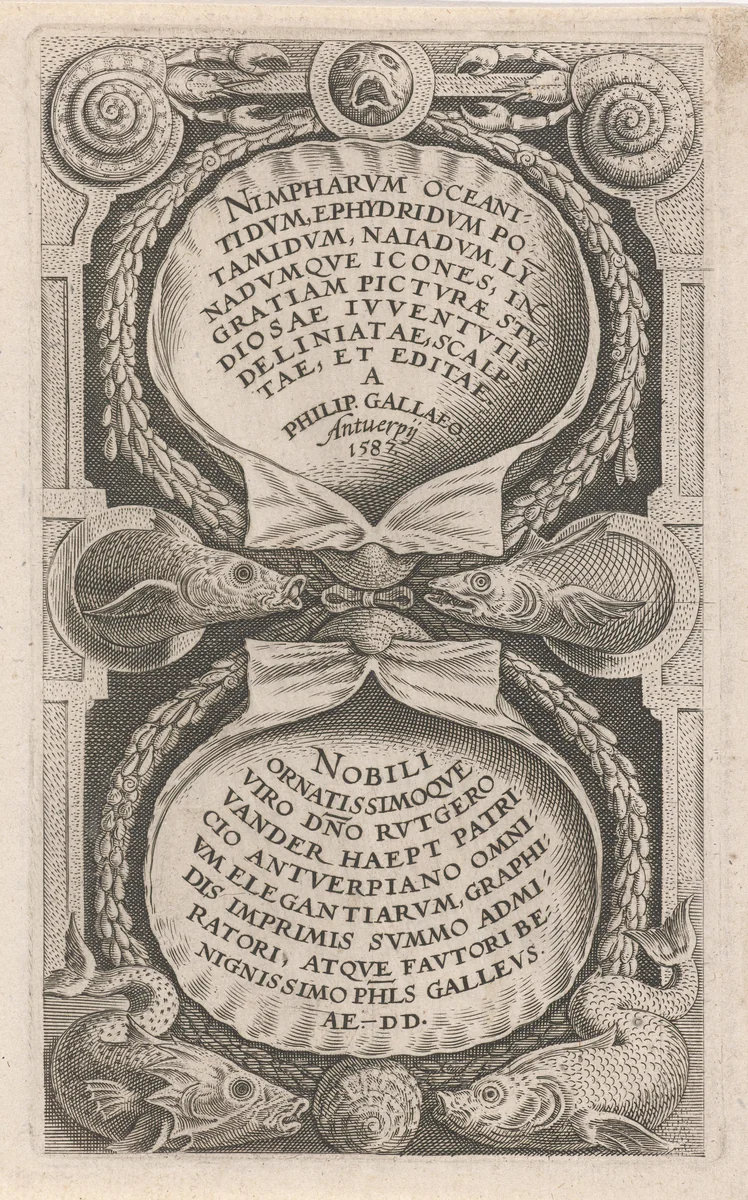 NIMPHARVM OCEANI-
TIDVM, EPHYDRIDVM PO-
TAMIDVM, NAIADVM, LY
NADVMQVE ICONES, IN
GRATIAM PICTVRÆ STV-
DIOSAE IVVENTVTIS
DELINIATAE, SCALP-
TAE, ET EDITAE
A
PHILIP. GALLAEO.
Antuerpij
1587
NOBILI
ORNATISSIMOQVE
VIRO DN̄O RVTGERO
VANDER HAEPT PATRI-
CIO ANTVERPIANO OMNI-
VM ELEGANTIARVM, GRAPHI-
DIS IMPRIMIS SVMMO ADMI-
RATORI, ATQVE FAVTORI BE-
NIGNISSIMO PHLS GALLEVS.
AE.—DD.